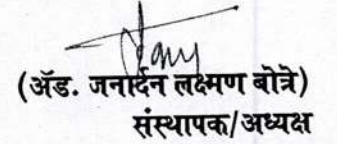 (ॲड. जनार्दन लक्ष्मण बोत्रे)
संस्थापक/अध्यक्ष